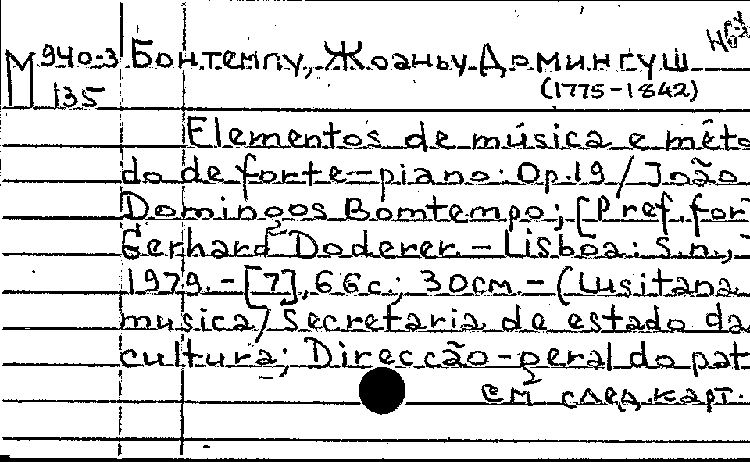 М 940-3 Бонтемпу, Жоаньу Домингуш
135 (1775-1842)
Elementos de música e méto
do de forte-piano: Op.19 / João
Domingos Bomtempo; [Pref. for
Gerhard Doderer. - Lisboa: s.n.,
1979. - [7], 66 с.; 30 см. - (Lusitana
musica / Secretaria de estado da
cultura; Direcção-geral do pat
см. след. карт.